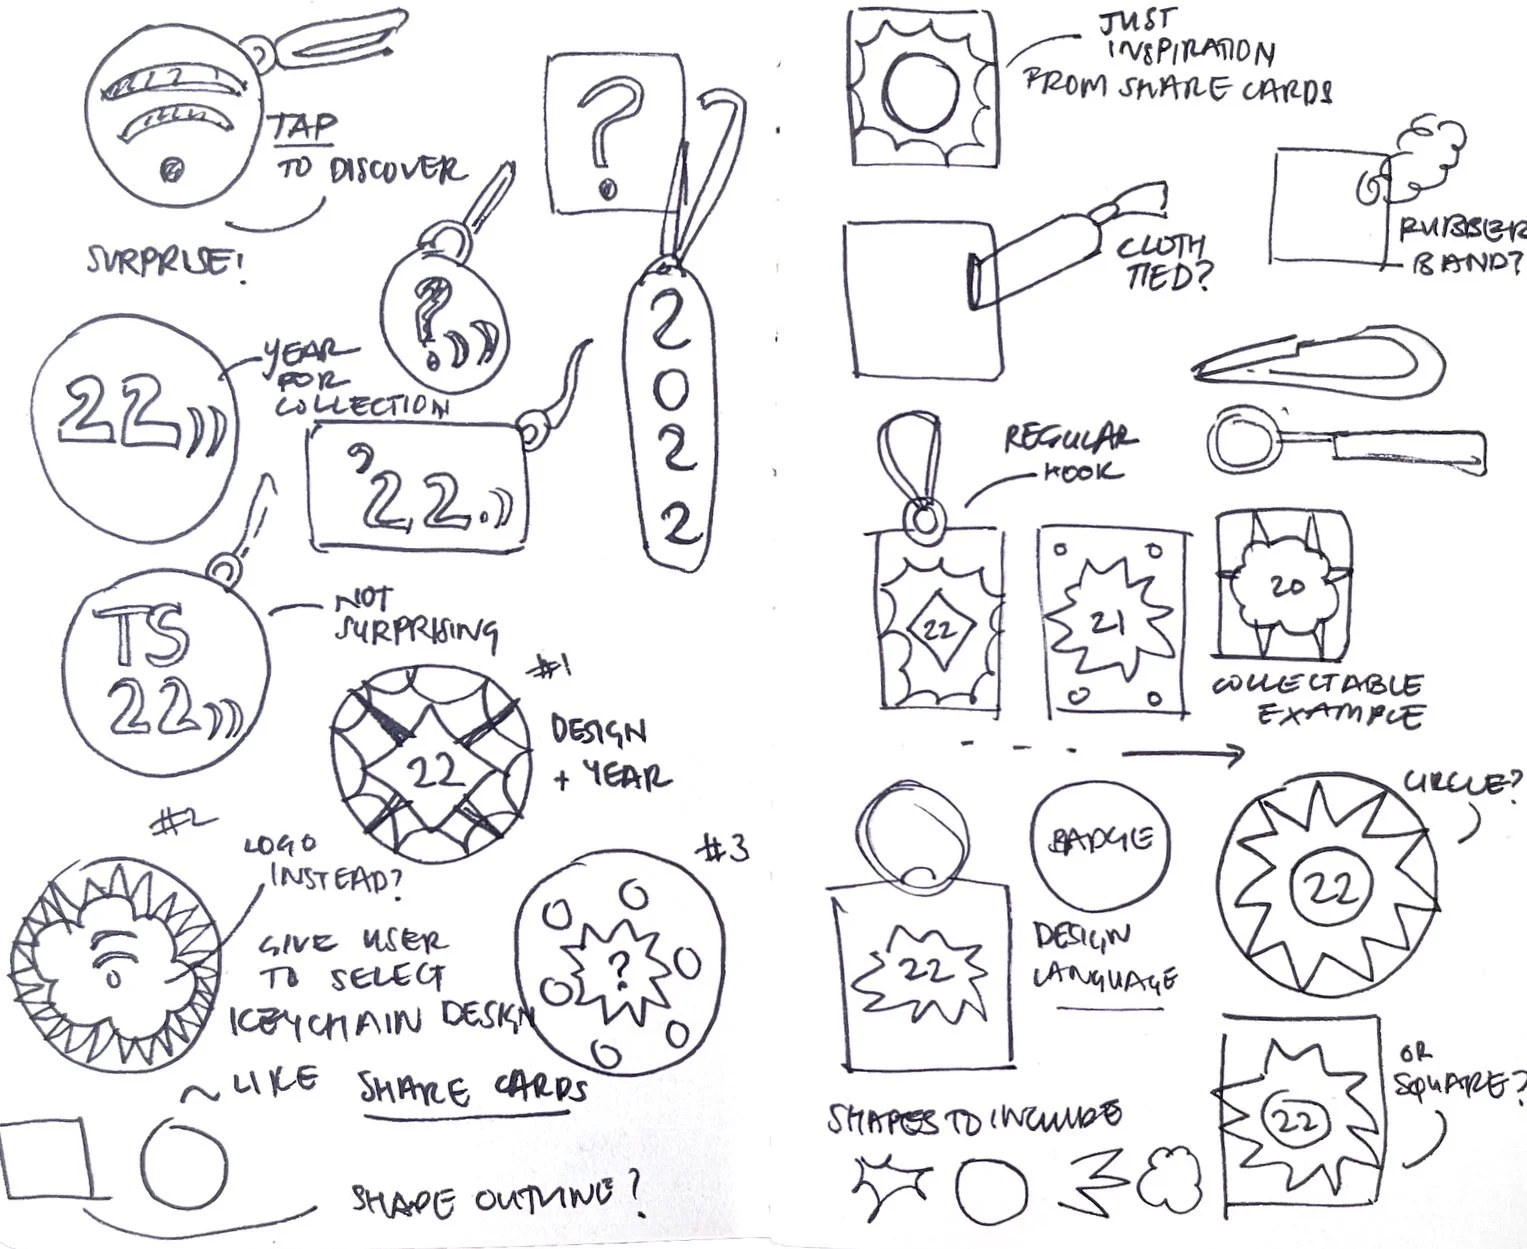 TAP
TO DISCOVER
SURPRISE!
?
?
2
0
2
2
22
YEAR
FOR
COLLECTION
'22.
TS
22
NOT
SURPRISING
#1
22
DESIGN
+ YEAR
#2
LOGO
INSTEAD?
GIVE USER
TO SELECT
KEYCHAIN DESIGN
~ LIKE SHARE CARDS
#3
?
SHAPE OUTLINE?
JUST
INSPIRATION
FROM SHARE CARDS
CLOTH
TIED?
RUBBER
BAND?
REGULAR
HOOK
22
21
20
COLLECTABLE
EXAMPLE
22
BADGE
DESIGN
LANGUAGE
CIRCLE?
22
OR
SQUARE?
22
SHAPES TO INCLUDE